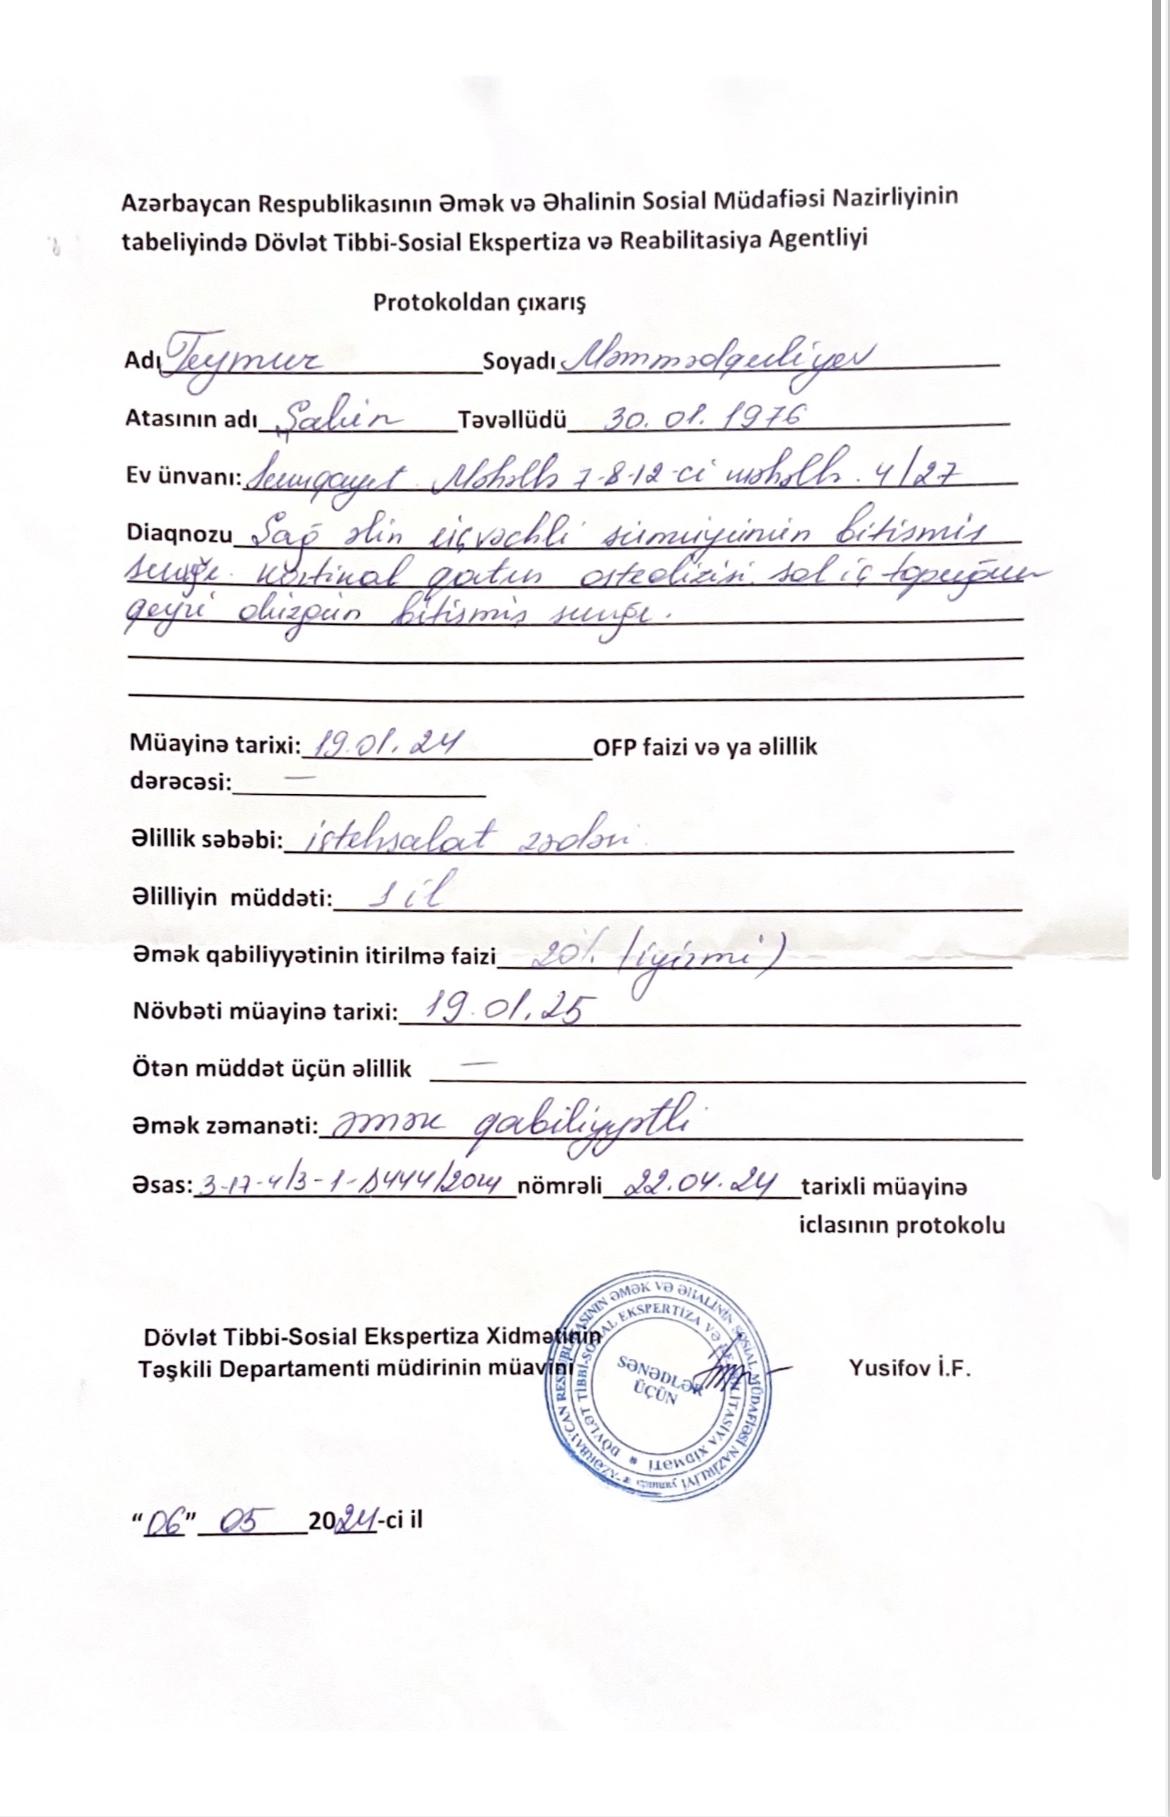 Azərbaycan Respublikasının Əmək və Əhalinin Sosial Müdafiəsi Nazirliyinin
tabeliyində Dövlət Tibbi-Sosial Ekspertiza və Reabilitasiya Agentliyi
Protokoldan çıxarış
Adı Teymur Soyadı Məmmədquliyev
Atasının adı Şahin Təvəllüdü 30.01.1976
Ev ünvanı: Sumqayıt Məhəllə 7-8-12-ci məhəllə. 4/27
Diaqnozu Sağ əlin üçvəchli sümüyünün bitişmiş
sınığı. kortikal qatın osteolizisi. sol iç topuğun
qeyri düzgün bitişmiş sınığı.
Müayinə tarixi: 19.01.24 OFP faizi və ya əlillik
dərəcəsi: —
Əlillik səbəbi: istehsalat zədəsi
Əlilliyin müddəti: 1 il
Əmək qabiliyyətinin itirilmə faizi 20% (iyirmi)
Növbəti müayinə tarixi: 19.01.25
Ötən müddət üçün əlillik —
Əmək zəmanəti: əmək qabiliyyətli
Əsas: nömrəli 22.04.24 tarixli müayinə
iclasının protokolu
Dövlət Tibbi-Sosial Ekspertiza Xidmətinin
Təşkili Departamenti müdirinin müavini Yusifov İ.F.
AZƏRBAYCAN RESPUBLİKASININ ƏMƏK VƏ ƏHALİNİN SOSİAL MÜDAFİƏSİ NAZİRLİYİ
DÖVLƏT TİBBİ-SOSİAL EKSPERTİZA VƏ REABİLİTASİYA XİDMƏTİ
SƏNƏDLƏR
ÜÇÜN
"06" 05 2024-ci il